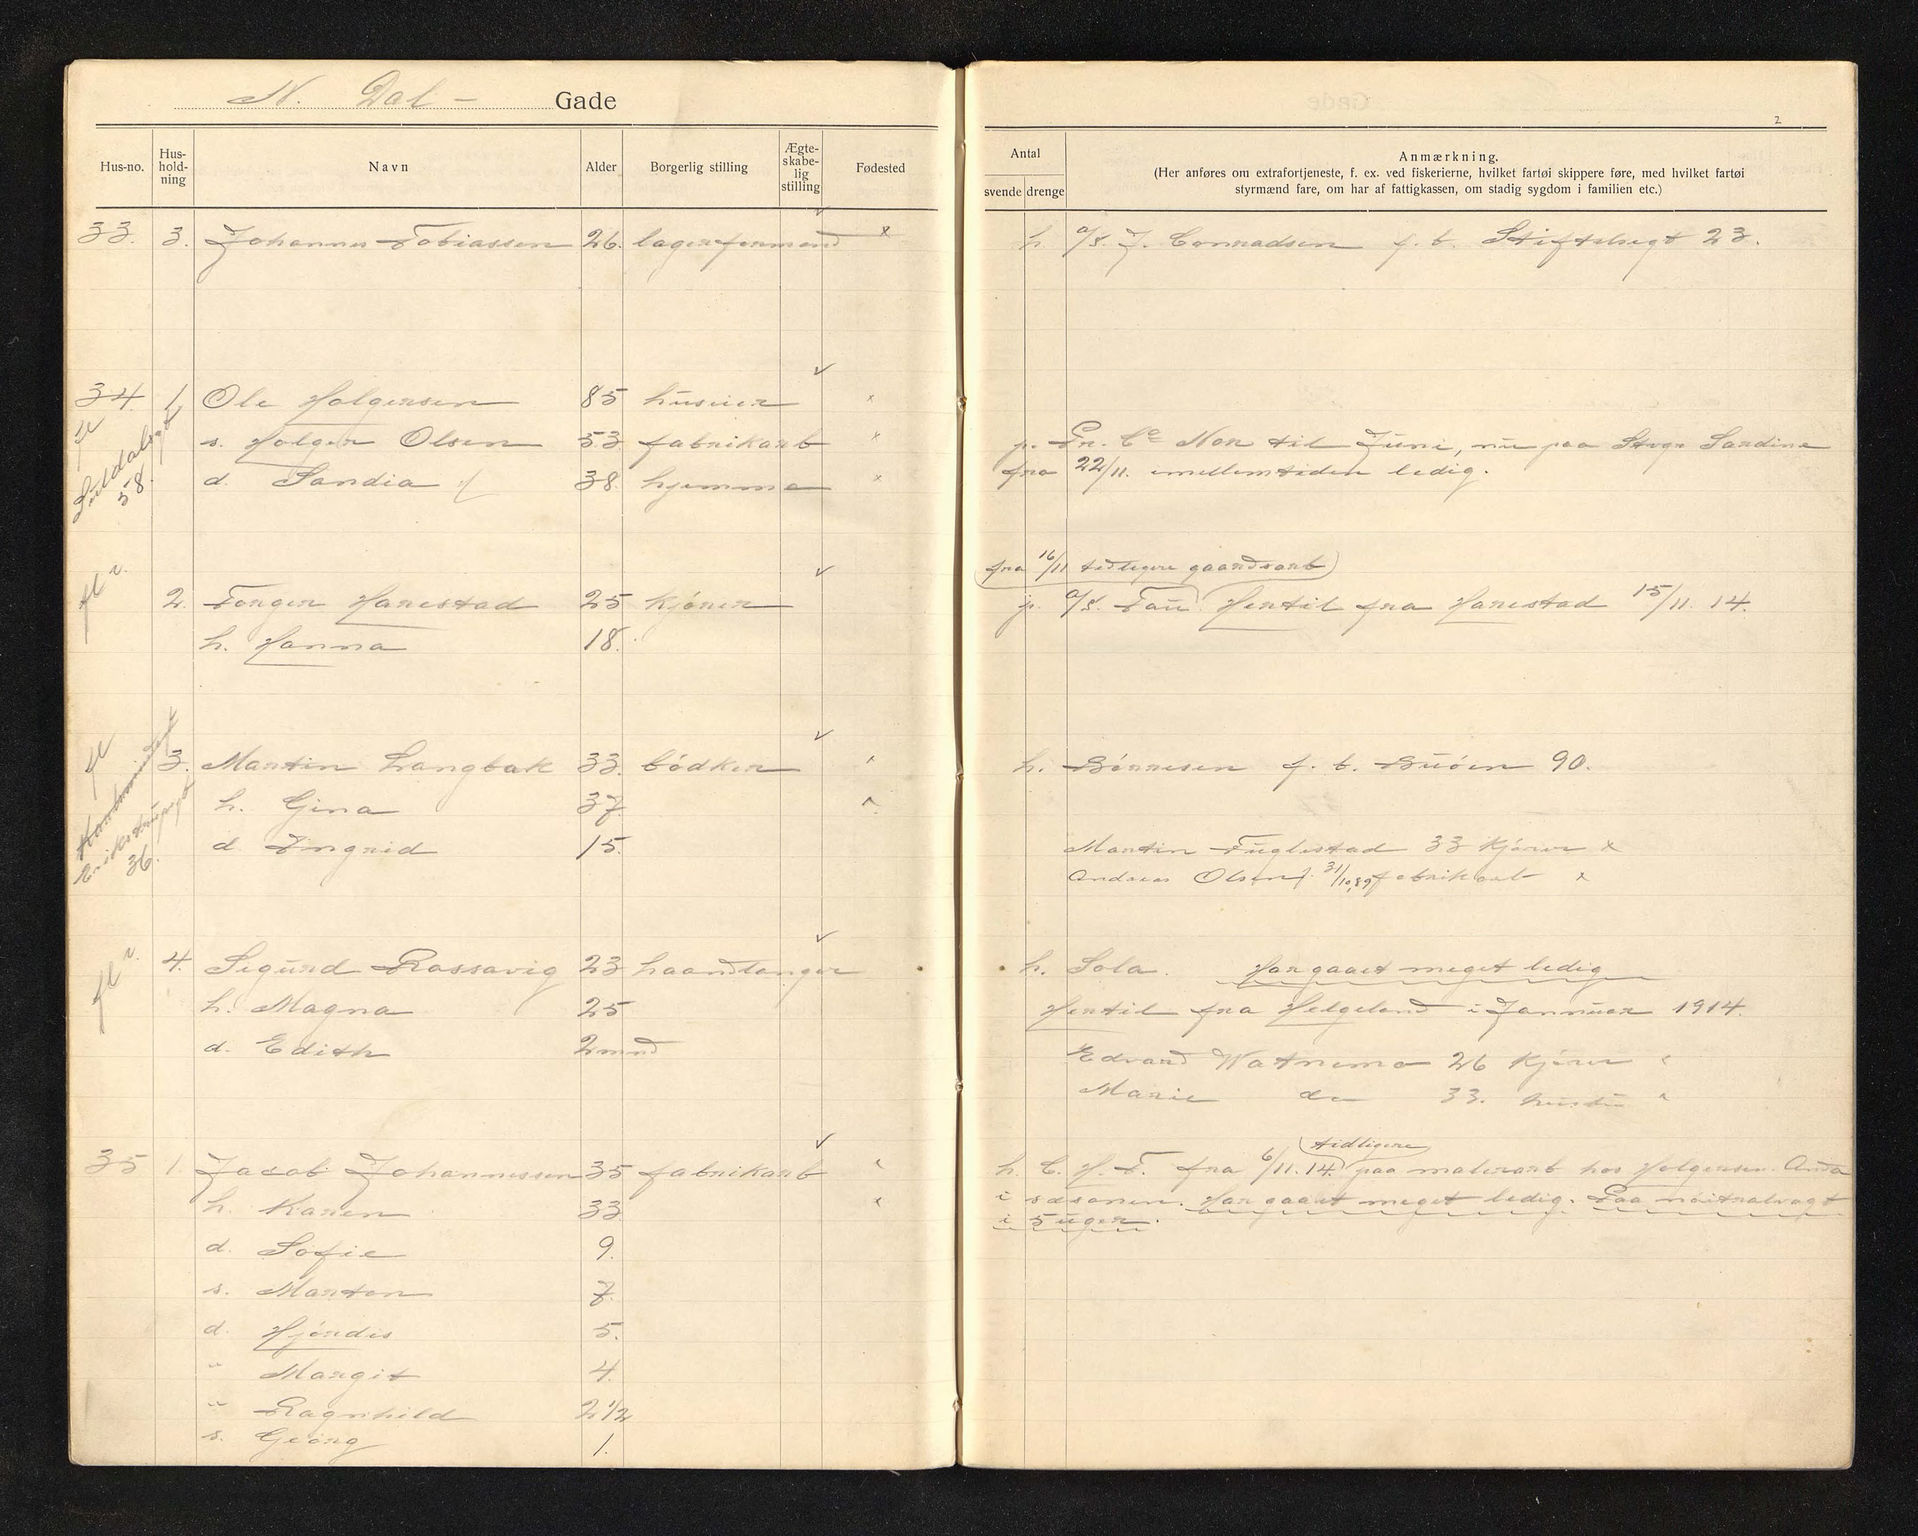 N. Dal - Gade
Hus-no. Hus-hold-ning Navn Alder Borgerlig stilling Ægte-skabe-lig stilling Fødested
33. 3. Johannes Tobiassen 26. lagerformand x
34. 1. Ole Holgersen 85 huseier x
fl Suldalsgt 58.
s. Holger Olsen 53 fabrikarb x
d. Sandia 38. hjemme x
fl 2. Torger Hanestad 25 kjører
h. Hanna 18.
fl 3. Martin Langbak 33. bødker
Erikstrupsgt 36.
h. Gina 37.
d. Ingrid 15.
fl 4. Sigurd Rossavig 23 haandlanger
h. Magna 25
d. Edith 2 mnd
35 1. Jacob Johannessen 35 fabrikarb
h. Karen 33
d. Sofie 9.
s. Marton 7.
d. Hjørdis 5.
" Margit 4.
" Ragnhild 2 1/2
s. Georg 1.
2
Antal
svende drenge
Anmærkning.
(Her anføres om extrafortjeneste, f. ex. ved fiskerierne, hvilket fartøi skippere føre, med hvilket fartøi
styrmænd fare, om har af fattigkassen, om stadig sygdom i familien etc.)
h. a/s. J. Conradsen f. b. Stiftelsegt 23.
p. Pr. Co Nor til Juni, nu paa Stvgr Sardine
fra 22/11. imellemtiden ledig.
fra 16/11 tidligere gaardsarb
p. a/s. Tau. Hertil fra Hanestad 15/11. 14.
h. Børresen f. b. Buøen 90.
Martin Fuglestad 33 kjører x
Andreas Olsen f. 31/10.89 fabrikarb x
h. Sola. Har gaaet meget ledig
Hertil fra Helgeland i Januar 1914.
Edvard Watnemo 26 kjører
Marie do 33. hustru
tidligere
h. C. H. T. fra 6/11. 14. paa malerarb hos Holgersen. Anda
i sæsonen. Har gaaet meget ledig. Paa nøitralvagt
i 5 uger.